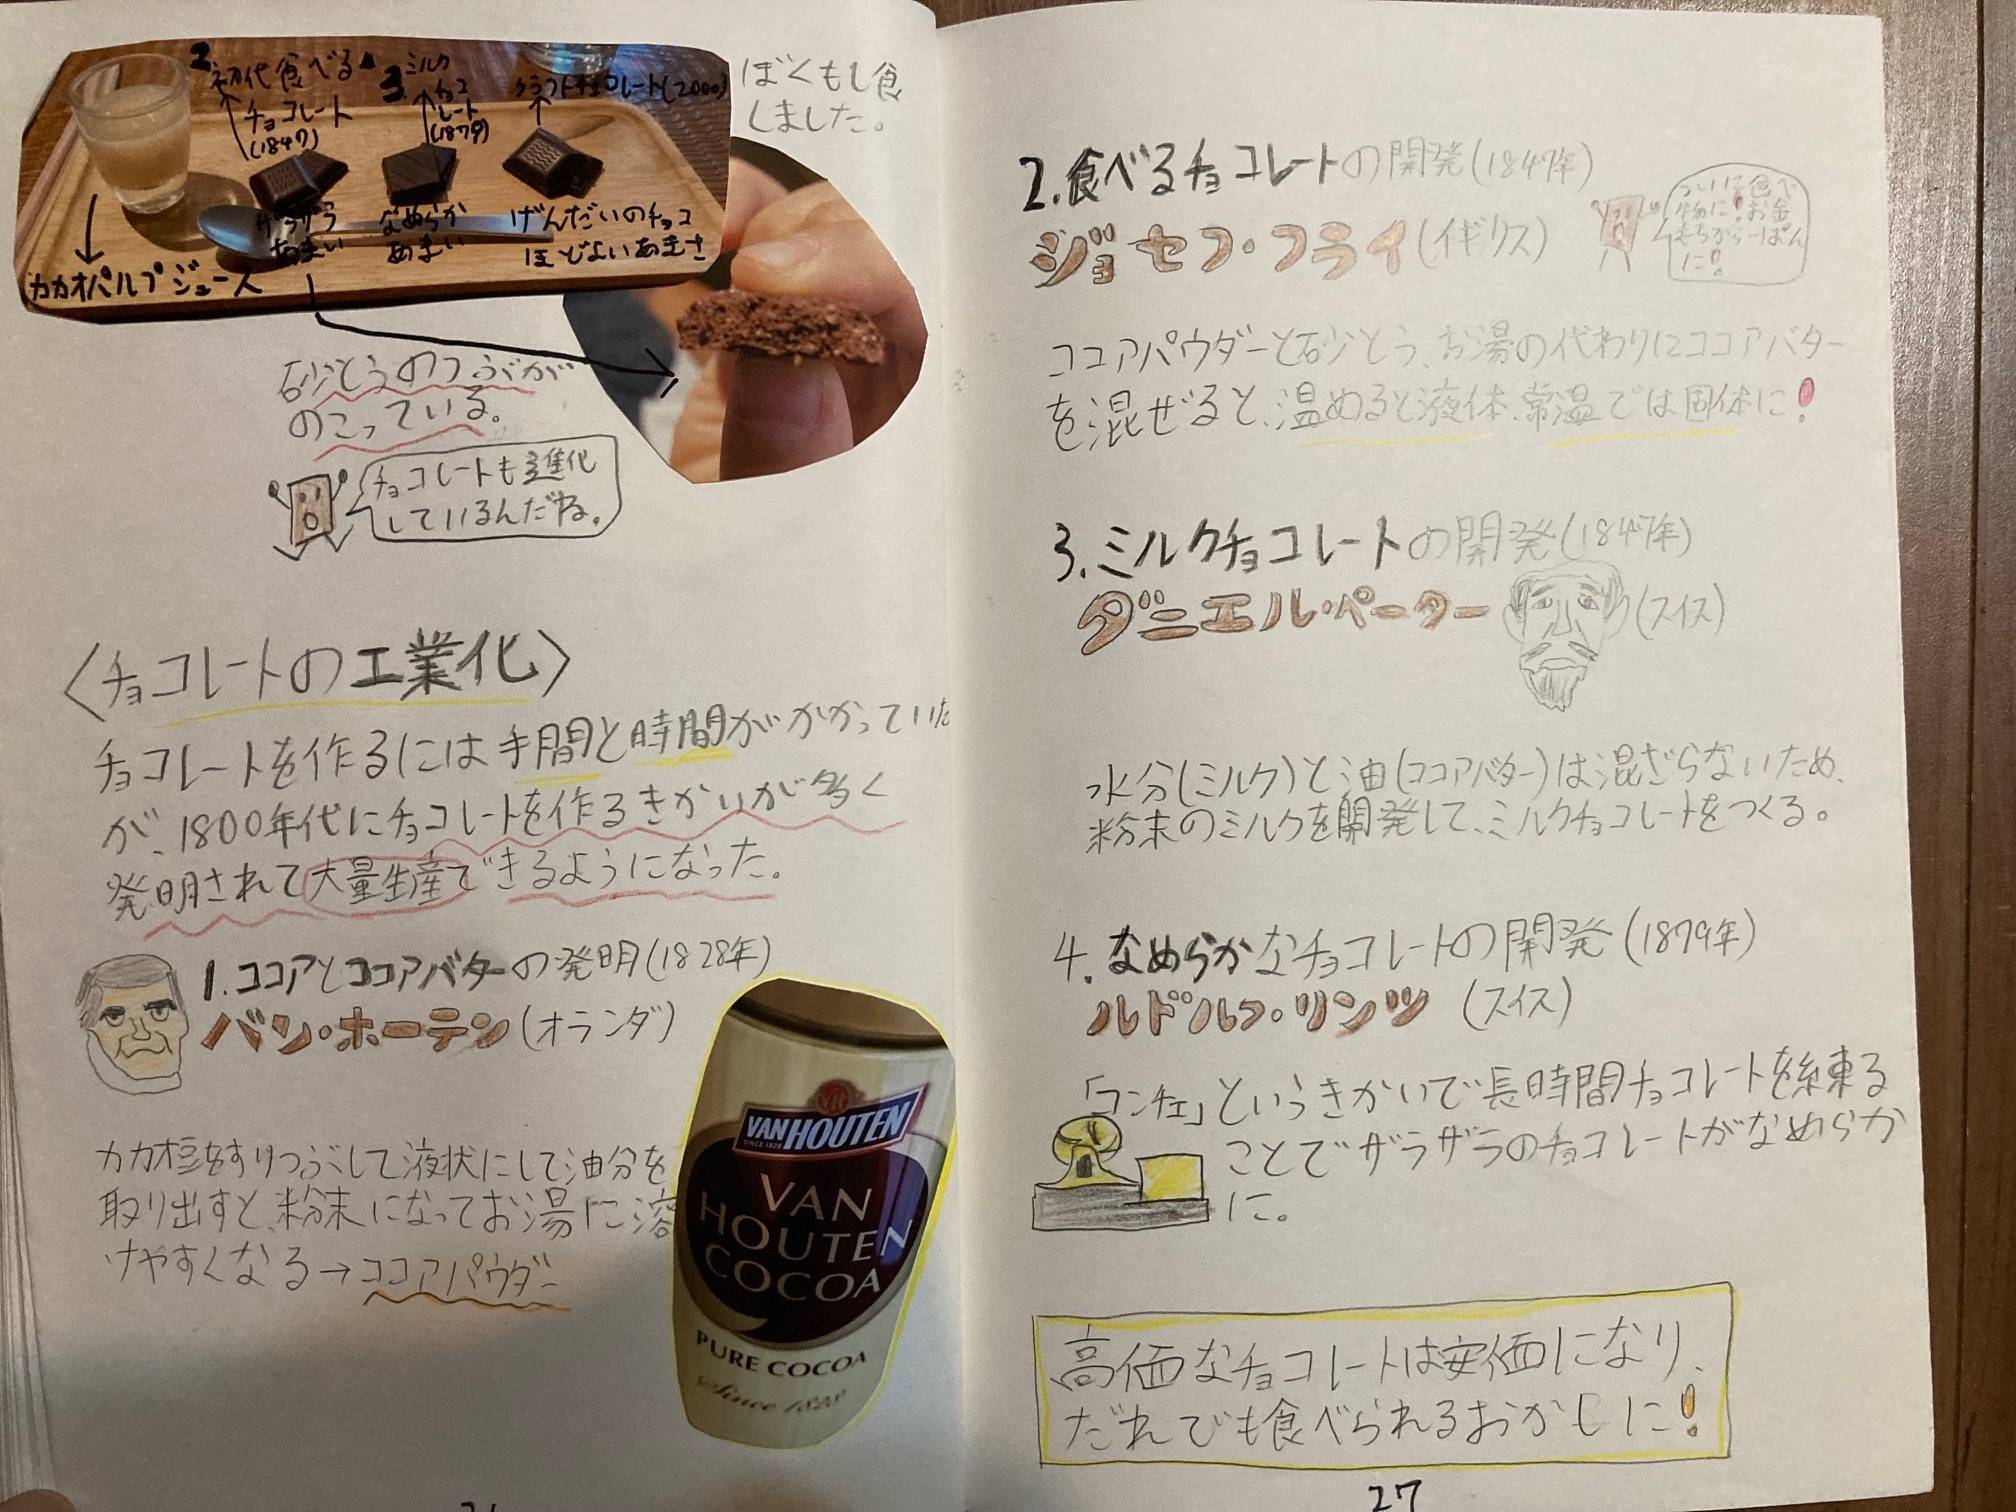 2.初代食べる
チョコレート
(1847)
3.ミルク
チョコ
レート
(1879)
クラフトチョコレート(2000)
ザラザラ
あまい
なめらか
あまい
げんだいのチョコ
ほどよいあまさ
カカオパルプジュース
ぼくもし食
しました。
砂とうのつぶが
のこっている。
チョコレートも進化
しているんだね。
〈チョコレートの工業化〉
チョコレートを作るには手間と時間がかかっていた
が、1800年代にチョコレートを作るきかいが多く
発明されて大量生産できるようになった。
1.ココアとココアバターの発明(1828年)
バン・ホーテン(オランダ)
カカオ豆をすりつぶして液状にして油分を
取り出すと、粉末になってお湯に溶
けやすくなる→ココアパウダー
VAN HOUTEN
SINCE 1828
VAN
HOUTEN
COCOA
PURE COCOA
Since 1828
2.食べるチョコレートの開発(1847年)
ジョセフ・フライ(イギリス)
ついに食べ
物に!お金
もちから一ぱん
に!
ココアパウダーと砂とう、お湯の代わりにココアバター
を混ぜると、温めると液体、常温では固体に!
3.ミルクチョコレートの開発(1847年)
ダニエル・ペーター(スイス)
水分(ミルク)と油(ココアバター)は混ざらないため、
粉末のミルクを開発して、ミルクチョコレートをつくる。
4.なめらかなチョコレートの開発(1879年)
ルドルフ・リンツ(スイス)
「コンチェ」というきかいで長時間チョコレートを練る
ことでザラザラのチョコレートがなめらか
に。
高価なチョコレートは安価になり、
だれでも食べられるおかしに!
27